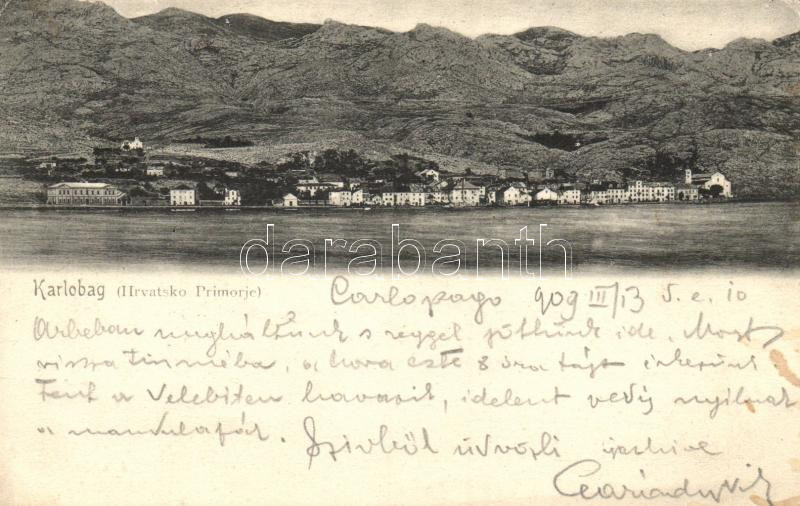 darabanth
Karlobag (Hrvatsko Primorje) Carlopago 909 III/13 d. e. 10
Arbeban megháltunk s reggel jöttünk ide. Most
vissza Fiuméba, a hova este 8 óra tájt érkezünk
Fent a Velebiten havazik, idelent meg nyílnak
a mandulafák. Szívből üdvözli